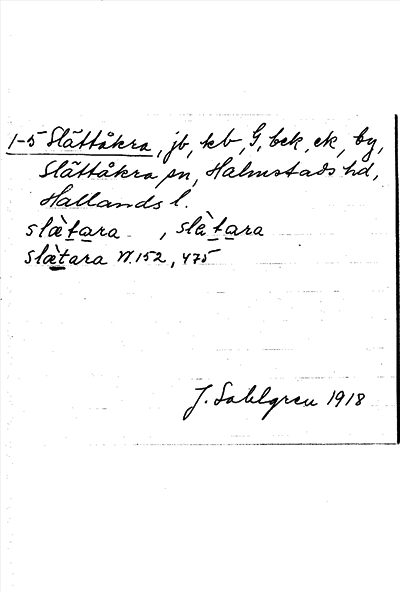 1-5 Slättåkra, jb, kb, G, bck, ck, by,
Slättåkra sn, Halmstads hd,
Hallands l.
slæ̀tara , slæ̀tara
slæ̀tara N. 152, 475
J. Sahlgren 1918